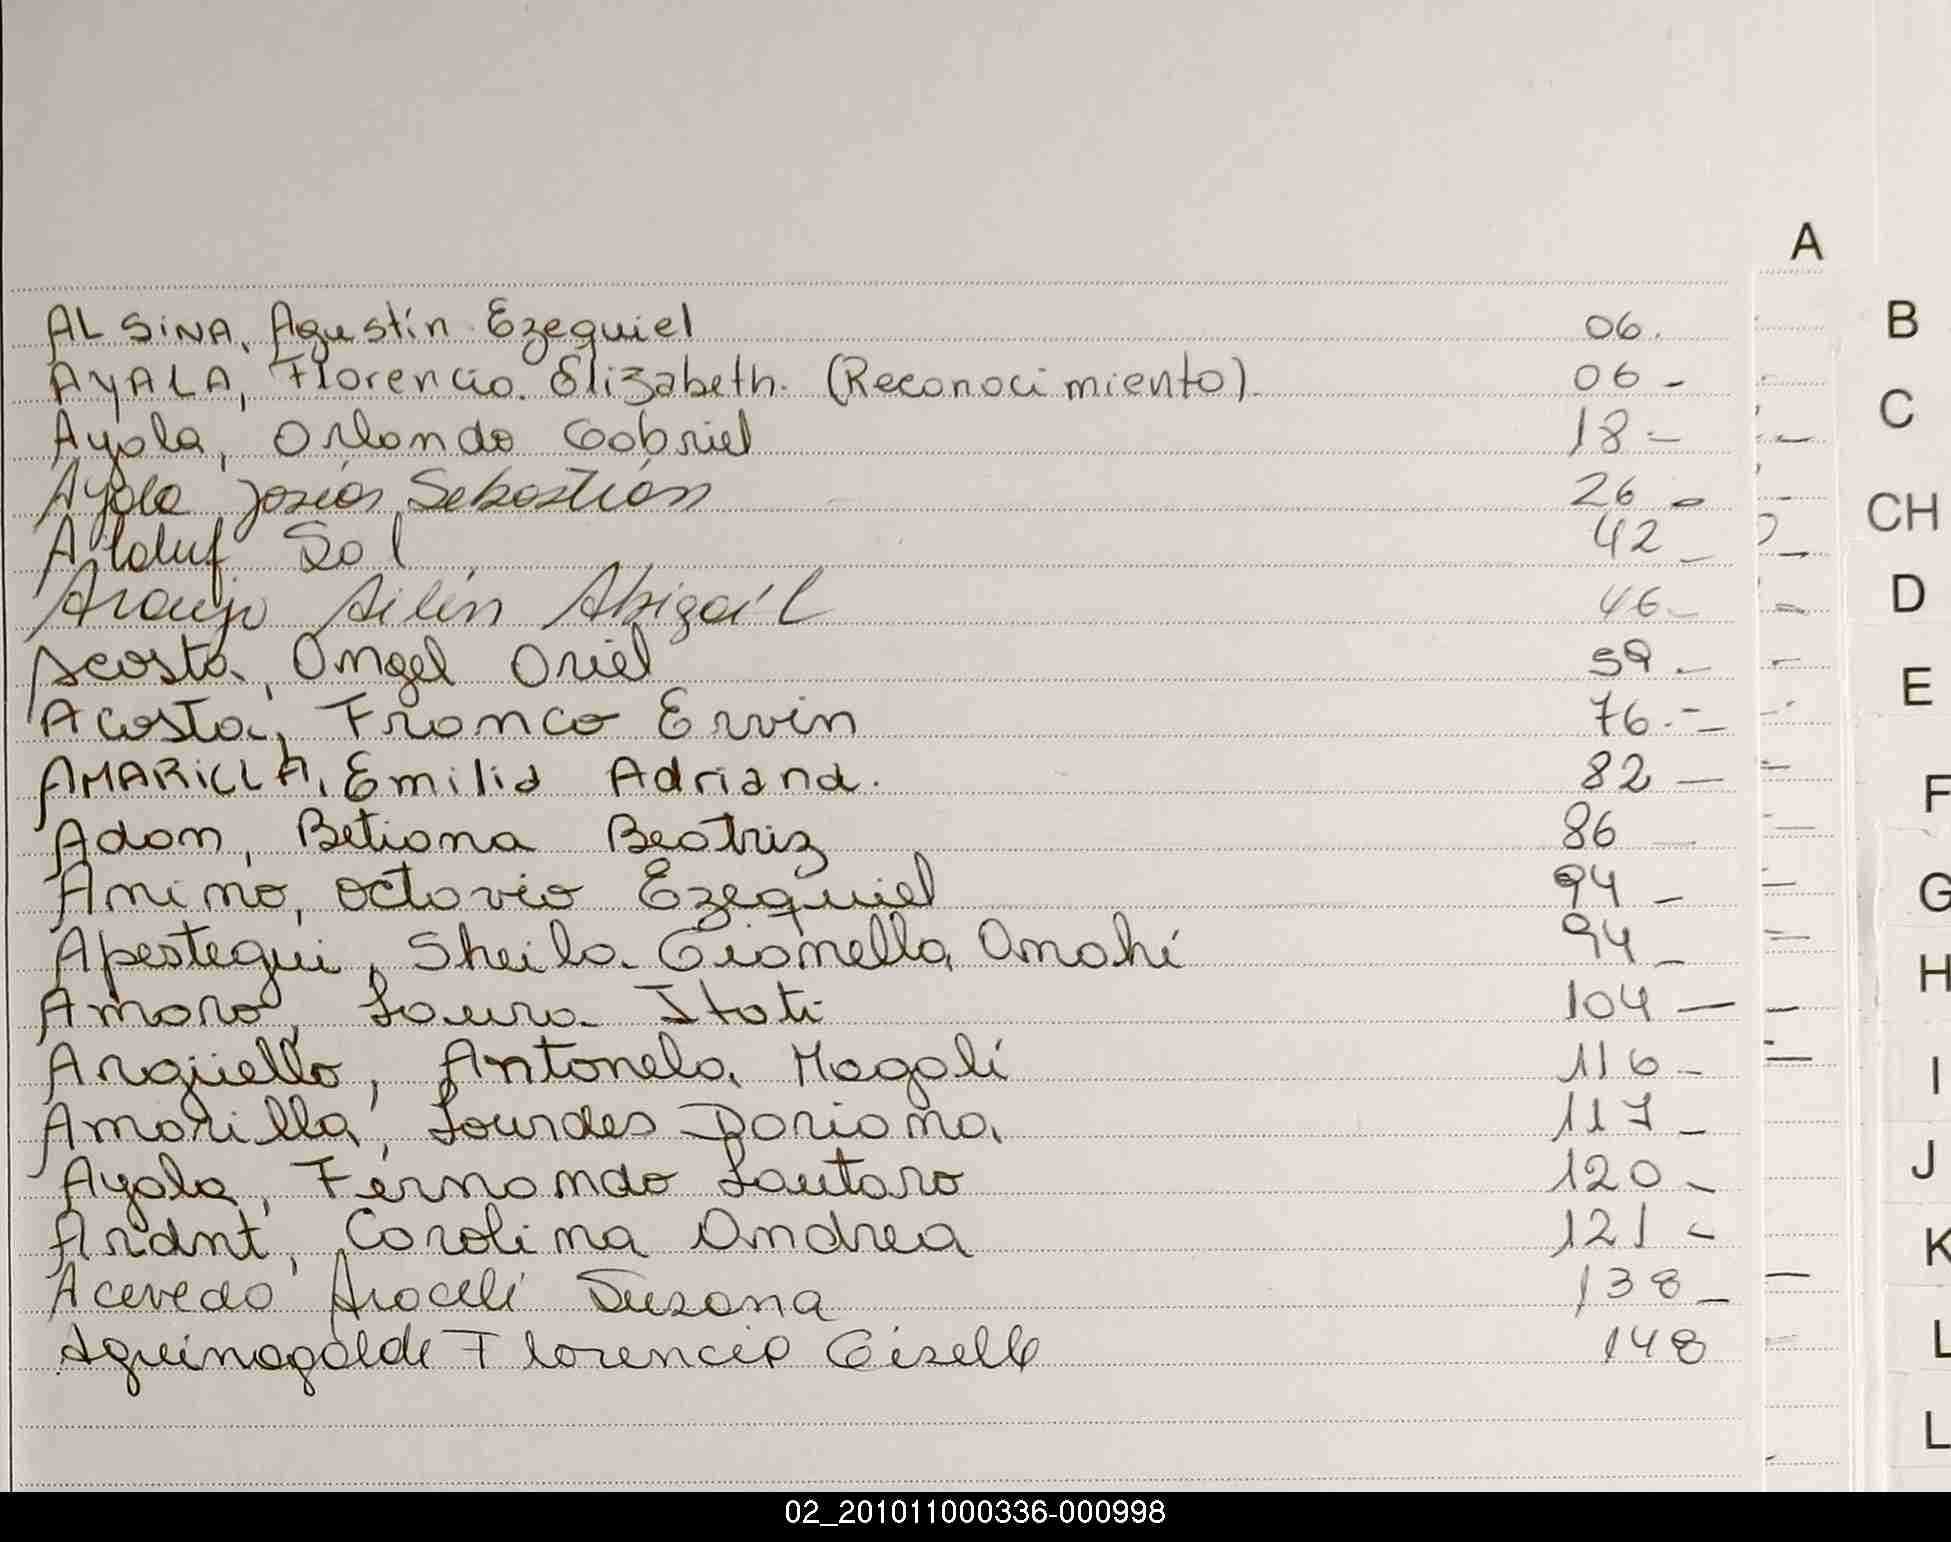 A
ALSINA, Agustín Ezequiel 06.
AYALA, Florencia Elizabeth. (Reconocimiento). 06 -
Ayala, Orlando Gabriel 18 -
Ayala Josías Sebastián 26 -
Sol 42 -
Araujo Ailén Abigaíl 46 -
Acosta, Angel Oriel 59 -
Acosta, Franco Ervin 76. -
AMARILLA, Emilia Adriana. 82 -
Adam, Betiana Beatriz 86
Animo, Octavio Ezequiel 94 -
Apestegui, Sheila Gianella Anahí 94 -
Amaro, Laura Itati 104 -
Argüello, Antonela Magalí 116 -
Amarilla, Lourdes Dariana 117 -
Ayala, Fernando Lautaro 120 -
Arndt, Carolina Andrea 121 -
Acevedo Araceli Susana 138 -
Aguinagalde Florencia Giselle 148
B
C
CH
D
E
F
G
H
I
J
K
L
L
02_201011000336-000998